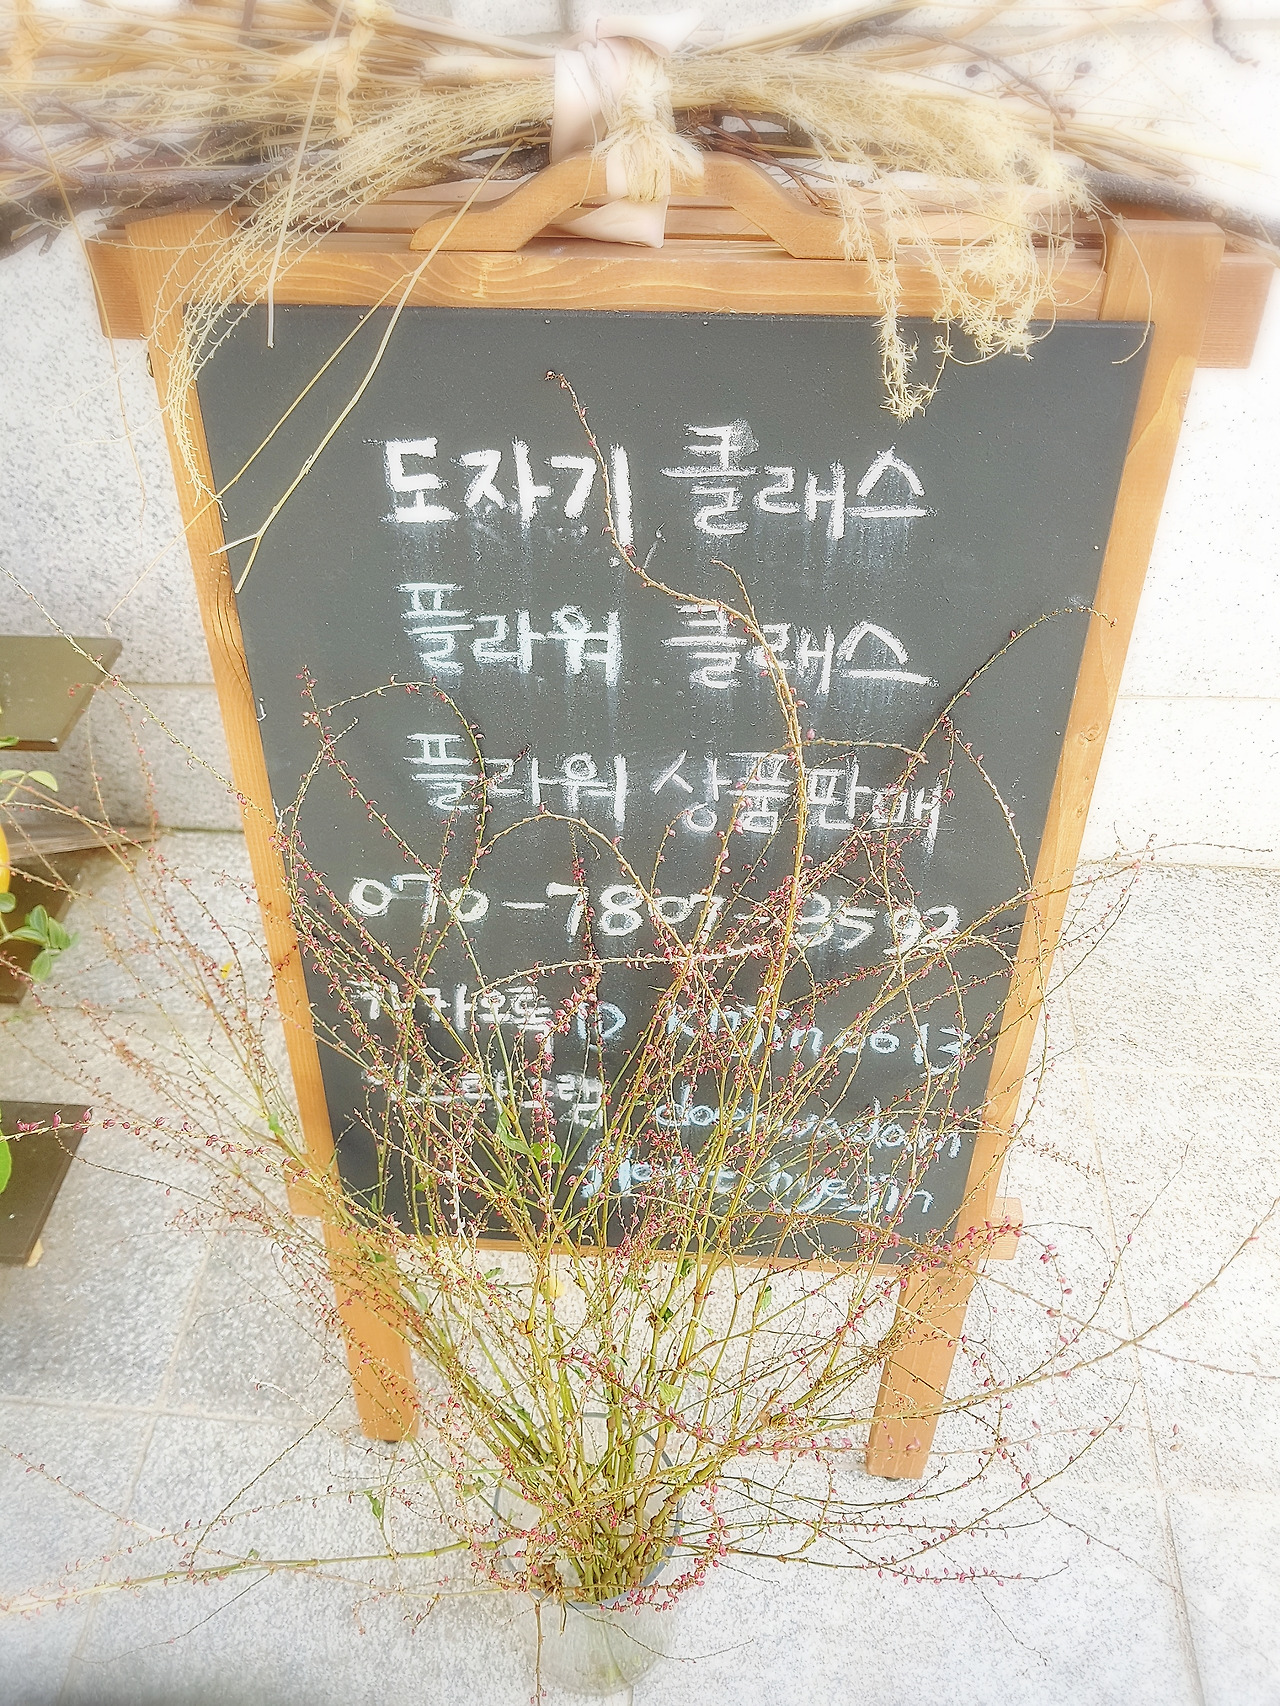 도자기 클래스
플라워 클래스
플라워 상품판매
070-7807-3592
카카오톡 ID
인스타그램